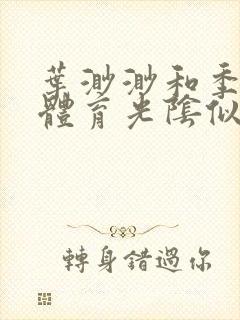 葉渺渺和季
體育光陰似
轉身錯過你